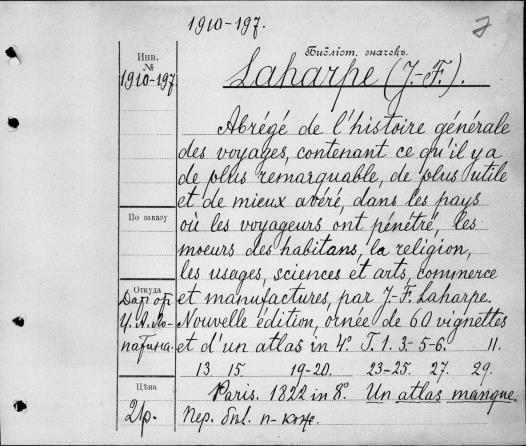 1910-197.
Библіот. значекъ.
Инв.
№
1910-197
Laharpe (J.-F.).
Abrégé de l'histoire générale
des voyages, contenant ce qu'il y a
de plus remarquable, de plus utile
et de mieux avéré, dans les pays
По заказу
où les voyageurs ont pénétré, les
moeurs des habitans, la religion,
les usages, sciences et arts, commerce
Откуда
et manufactures, par J.-F. Laharpe.
Nouvelle édition, ornée de 60 vignettes
et d'un atlas in 4º. T. 1. 3.- 5-6. 11.
13. 15. 19-20. 23-25. 27. 29.
Цѣна
Paris. 1822 in 8º. Un atlas manque.
2 р.
Пер. бпл. п-кож.